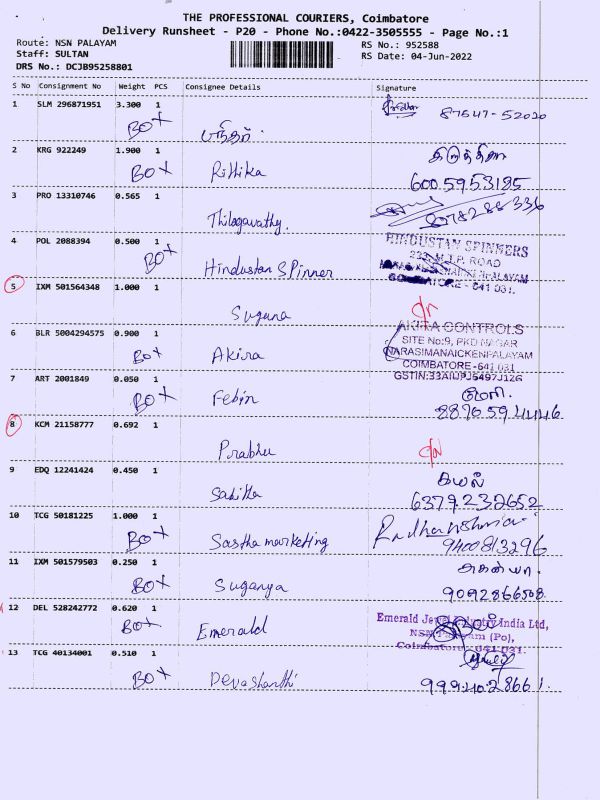 THE PROFESSIONAL COURIERS, Coimbatore
Delivery Runsheet - P20 - Phone No.:0422-3505555 - Page No.:1
Route: NSN PALAYAM
Staff: SULTAN
DRS No.: DCJB95258801
RS No.: 952588
RS Date: 04-Jun-2022
S No Consignment No Weight PCS Consignee Details Signature
1 SLM 296871951 3.300 1
BOX 87547-52020
2 KRG 922249 1.900 1
BOX Rithika
600 5953185
3 PRO 13310746 0.565 1
Thilagavathy.
4 POL 2088394 0.500 1
BOX Hindustan Spinner
HINDUSTAN SPINNERS
M.J.P. ROAD
COIMBATORE - 641 031.
5 IXM 501564348 1.000 1
Suguna
6 BLR 5004294575 0.900 1
BOX Akira
AKIRA CONTROLS
SITE No:9, PKD NAGAR
NARASIMANAICKENPALAYAM
COIMBATORE-641 031
7 ART 2001849 0.050 1
BOX Febin
8 KCM 21158777 0.692 1
Prabhu
9 EDQ 12241424 0.450 1
கமல்
6379232652
10 TCG 50181225 1.000 1
BOX Sastha marketing
9400813296
11 IXM 501579503 0.250 1
BOX Suganya
9092866508
12 DEL 528242772 0.620 1
BOX Emerald
Emerald Jewel Industry India Ltd,
NSN Palayam (Po),
Coimbatore - 641 031.
13 TCG 40134001 0.510 1
BOX Devashanthi